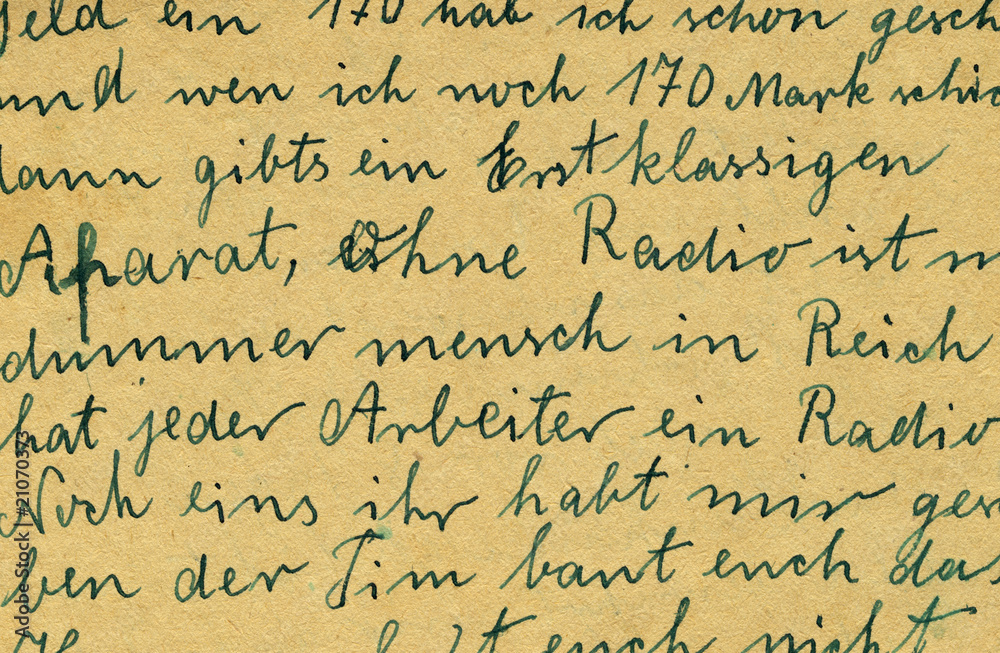 Geld ein 170 hab ich schon gesch
und wen ich noch 170 Mark schic
dann gibts ein Erstklassigen
Aparat, Ohne Radio ist n
dummer mensch in Reich
hat jeder Arbeiter ein Radio
Noch eins ihr habt mir gesc
ben der Tim baut euch das
euch nicht
Adobe Stock | #21070373